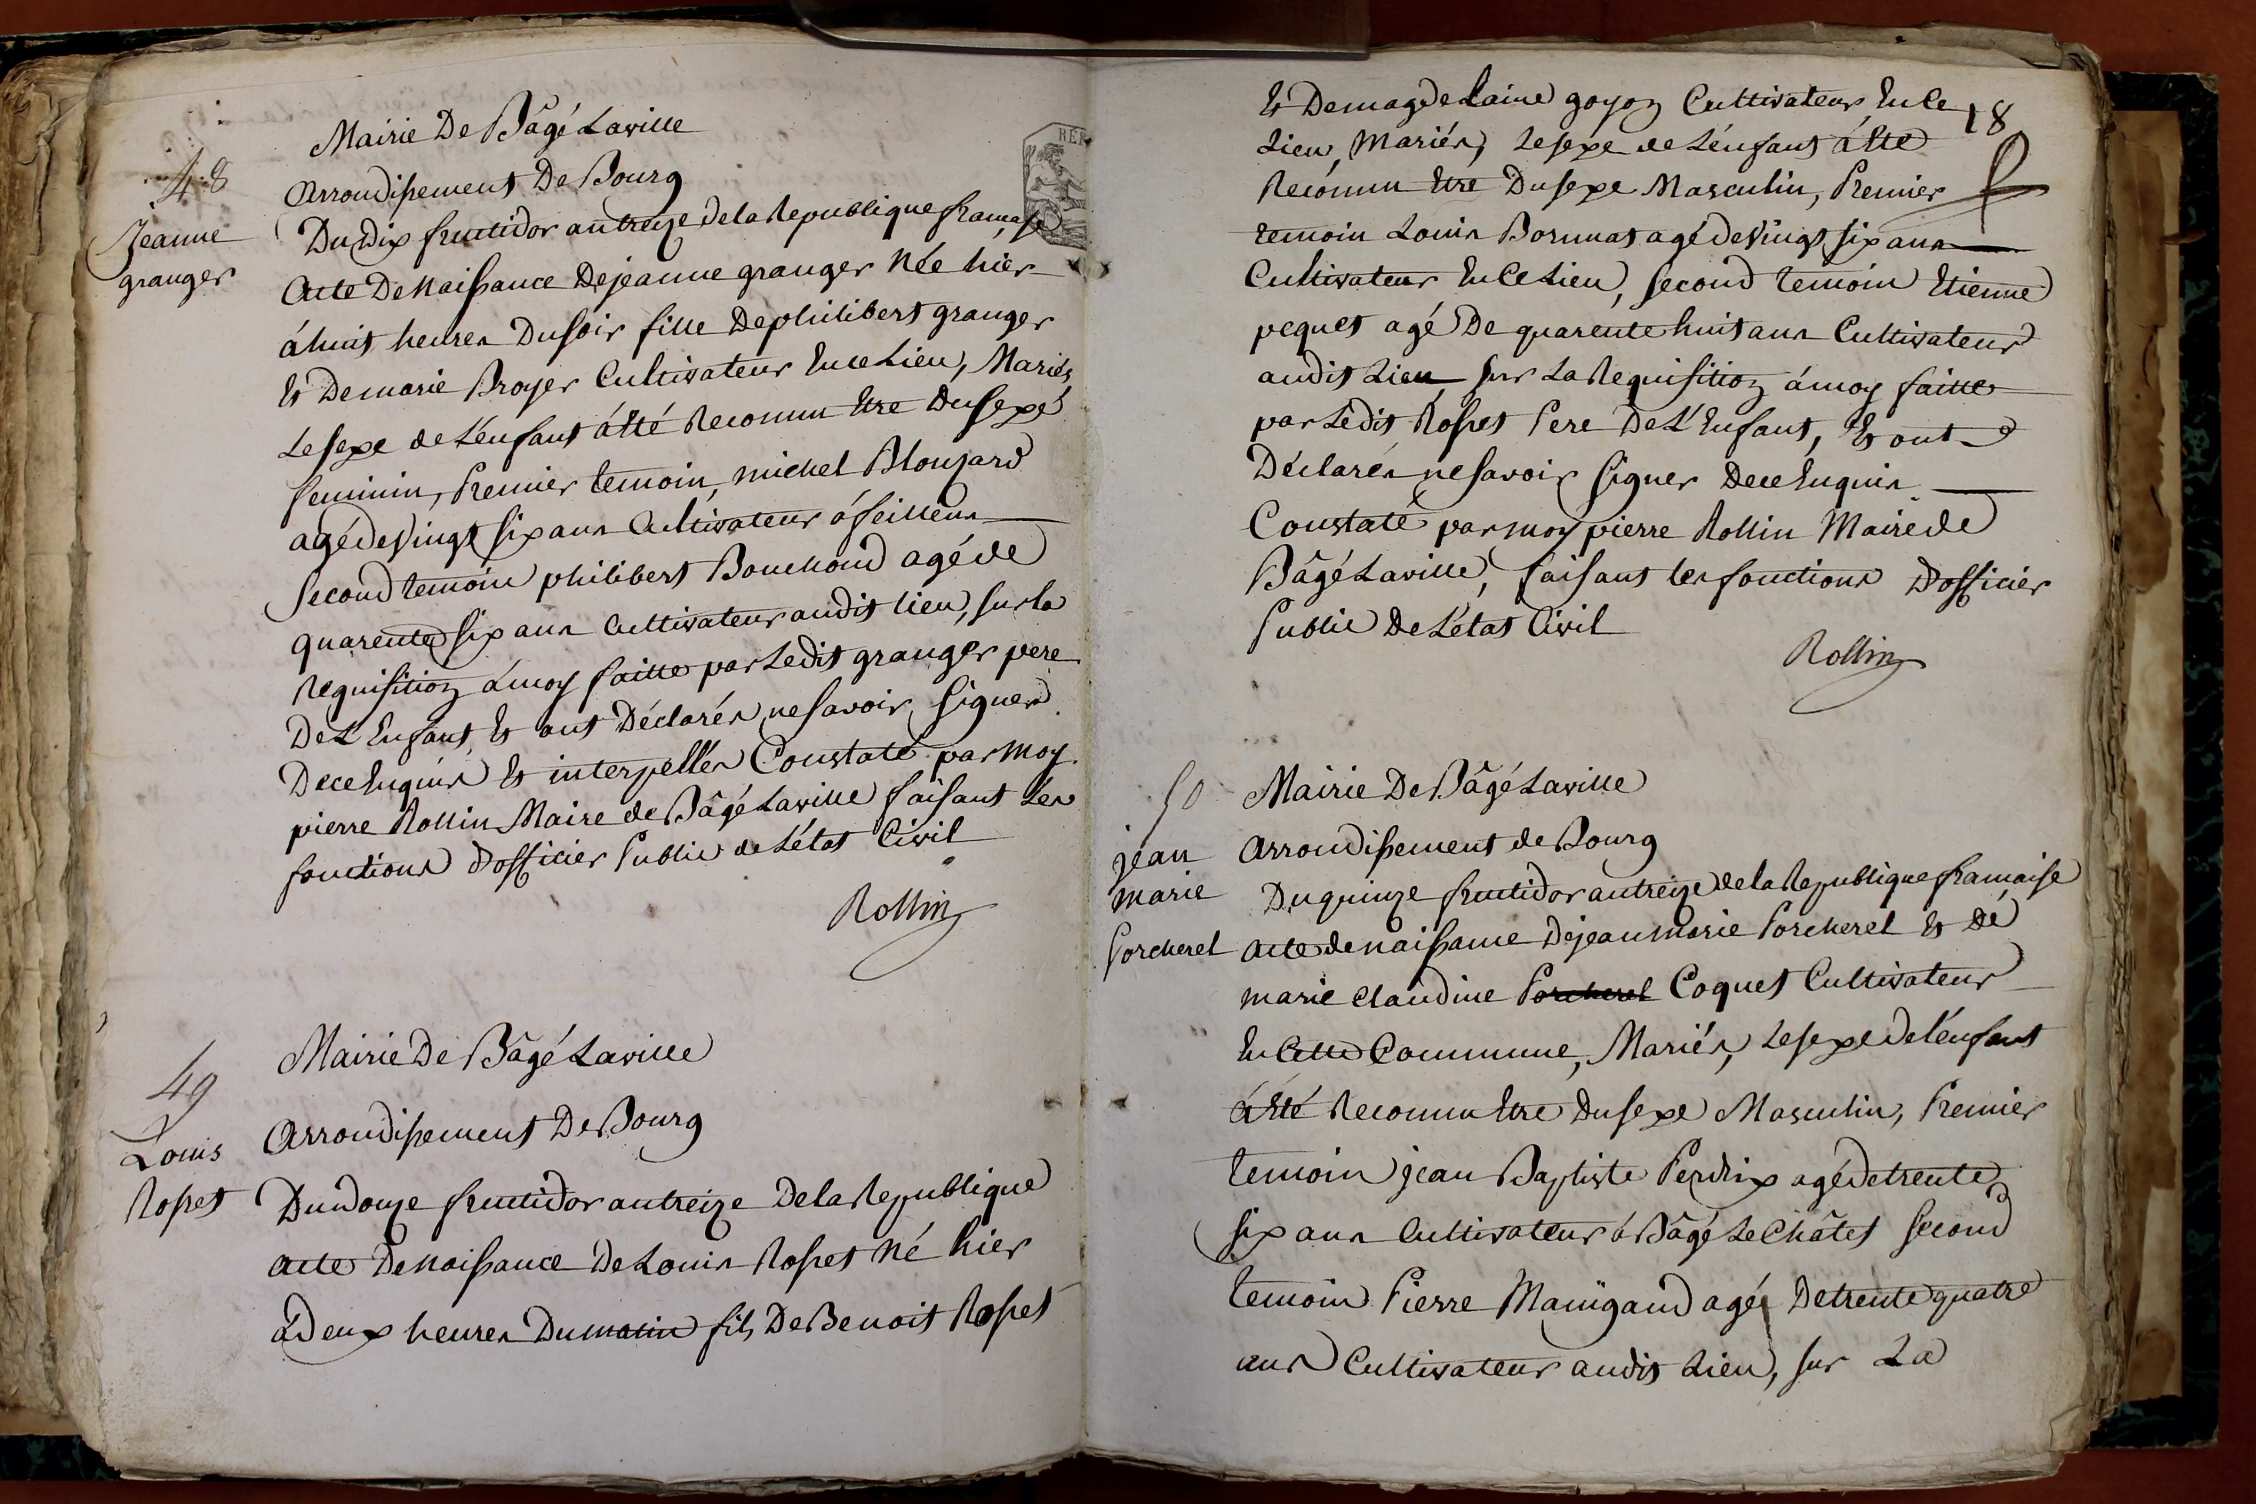 48
Jeanne
granger
Mairie De Bâgé Laville
Arrondissement De Bourg
Du dix fructidor an treize de la Republique francaise
Acte De Naissance De jeanne granger Née hier
á huit heures Du soir fille De philibert granger
Et De marie Broyer Cultivateur En ce Lieu, Mariés,
Le sexe de L'énfant á Eté Reconnu Etre Du sexe
feminin, Premier temoin, michel Blonjard
agé de Vingt six ans Cultivateur á feillens
Second temoin philibert Bouchoud agé de
quarente six ans Cultivateur audit lieu, sur la
Requisition á moy faitte par Ledit granger pere
De L'Enfant, Et ont Déclarés ne savoir Signer
De ce Enquis Et interpellés Constaté par moy
pierre Rollin Maire de Bâgé Laville faisant Les
fonctions D'officier Public de L'état Civil
Rollin
49
Louis
Rosset
Mairie De Bâgé Laville
Arrondissement De Bourg
Du douze fructidor an treize De la Republique
acte De Naissance De Louis Rosset Né hier
á Deux heures Du matin fils De Benoit Rosset
18
Et De magdelaine goyon Cultivateur En Ce
Lieu, Mariés, Le sexe de L'énfant á Eté
Reconnu Etre Du sexe Masculin, Premier
temoin Louis Bornnat agé de Vingt six ans
Cultivateur En Ce Lieu, Second temoin Etienne
pequet agé De quarente huit ans Cultivateur
audit Lieu Sur La Requisition á moy faitte
par Ledit Rosset Pere De L'Enfant, Et ont
Déclarés ne savoir Signer De ce Enquis
Constaté par moy pierre Rollin Maire de
Bâgé Laville, faisant les fonctions D'officier
Public De L'état Civil
Rollin
50
jean
marie
Porcherel
Mairie De Bâgé Laville
Arrondissement de Bourg
Du quinze fructidor an treize de la Republique francaise
Acte de naissance De jean marie Porcherel Et De
marie Claudine Porcherel Coquet Cultivateur
En Cette Commune, Mariés, Le sexe de L'énfant
á Eté Reconnu Etre Du sexe Masculin, Premier
temoin jean Baptiste Perdrix agé de trente
six ans Cultivateur á Bâgé Le Châtet Second
temoin Pierre Manigand agé De trente quatre
ans Cultivateur audit Lieu, sur La